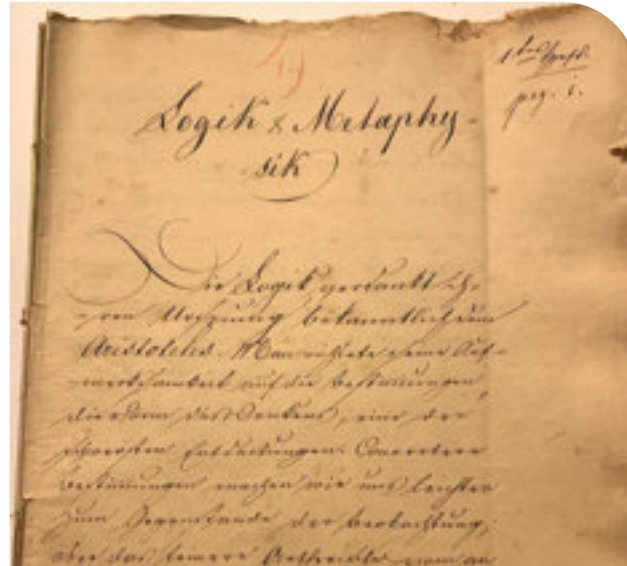 4)
1tes Heft.
pag. 1.
Logik & Metaphy-
sik
Die Logik verdankt ih-
-ren Ursprung bekanntlich dem
Aristoteles. Man richtete seine Auf-
-merksamkeit auf die Bestimmungen,
die Form des Denkens, eine der
schwersten Entdeckungen. Concretere
Bestimmungen machen wir uns leichter
zum Gegenstande der Beobachtung;
aber das